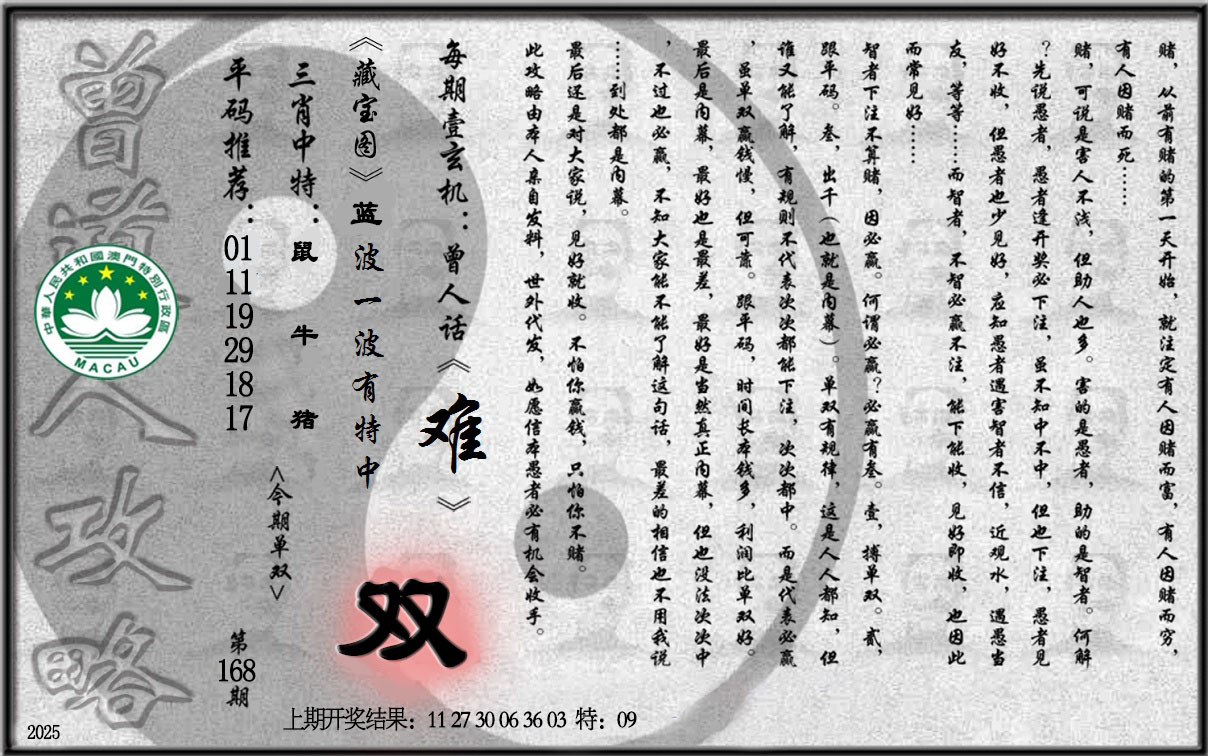 赌，从前有赌的第一天开始，就注定有人因赌而富，有人因赌而穷，
有人因赌而死……
赌，可说是害人不浅，但助人也多。害的是愚者，助的是智者。何解
？先说愚者，愚者逢开奖必下注，虽不知中不中，但也下注，愚者见
好不收，但愚者也少见好，应知愚者遇害智者不信，近观水，遇愚当
友，等等……而智者，不智必赢不注，能下能收，见好即收，也因此
而常见好……
智者下注不算赌，因必赢。何谓必赢？必赢有叁。壹，搏单双。贰，
跟平码。叁，出千（也就是内幕）。单双有规律，这是人人都知，但
谁又能了解，有规则不代表次次都能下注，次次都中。而是代表必赢
，虽单双赢钱慢，但可靠。跟平码，时间长本钱多，利润比单双好。
最后是内幕，最好也是最差，最好是当然真正内幕，但也没法次次中
，不过也必赢，不知大家能不能了解这句话，最差的相信也不用我说
……到处都是内幕。
最后还是对大家说，见好就收。不怕你赢钱，只怕你不赌。
此攻略由本人亲自发料，世外代发，如愿信本愚者必有机会收手。
每期壹玄机：曾人话《难》
《藏宝图》蓝波一波有特中
双
三肖中特：鼠 牛 猪
<今期单双>
平码推荐：01 11 19 29 18 17
第168期
曾道人攻略
中華人民共和國澳門特別行政區
MACAU
上期开奖结果：11 27 30 06 36 03 特：09
2025